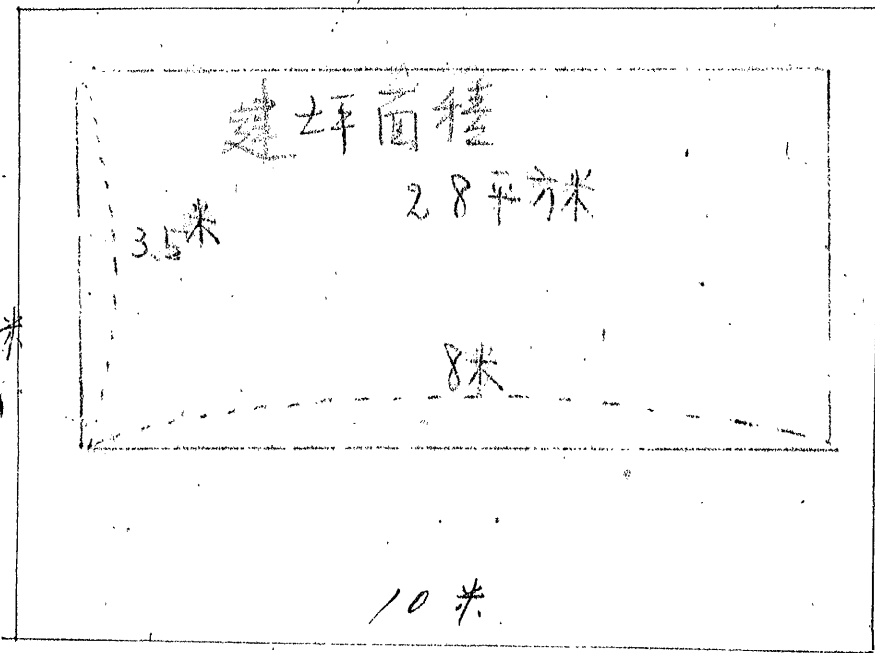 建坪面積
28平方米
3.5米
米
8米
10米